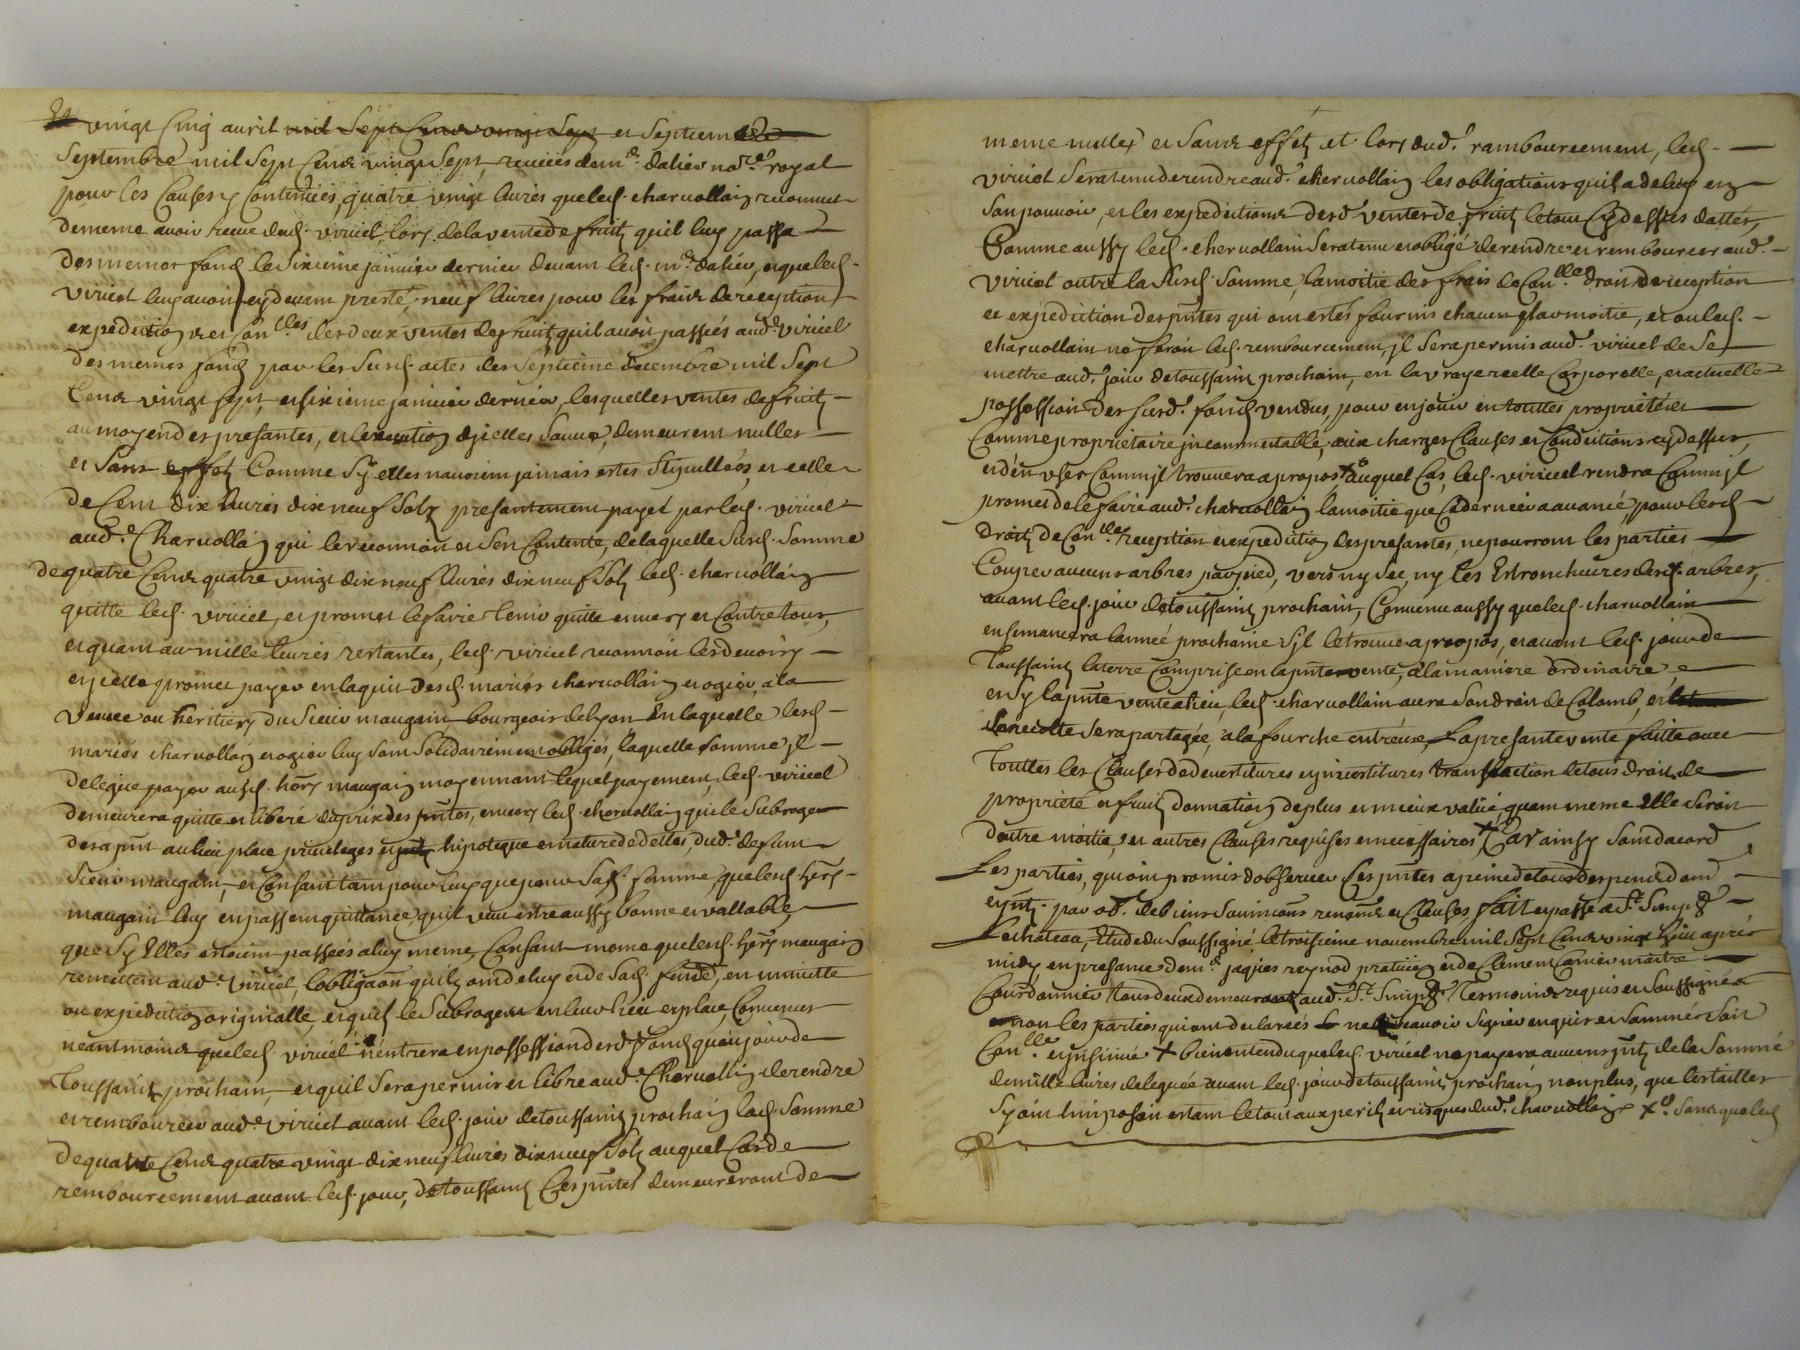 vingt Cinq auril mil Sept Cents vingt Sept et Septiem
Septembre mil Sept Cents vingt Sept, receües dem.e dalier no.re royal
pour les Causes y Contenües, quatre vingt liures que led. charuollain reconnut
dememe auoir receu dud. viricel, lors dela vente de fruit quil luy passa
desmemes fond le Sixieme januier dernier deuant led. m.e dalier, et que led.
viricel luy auoit cy deuant presté, neuf liures pour les frais de reception
expedition et Con.lles des deux ventes de fruit quil auoit passées aud. viricel
des memes fond par les Susd. actes des Septieme decembre mil Sept
Cents vingt sept, et sixieme januier dernier, lesquelles ventes de fruit
au moyen des presantes, et lexecution dicelles Sauue, demeurent nulles
et Sans effet Comme Sy elles nauoient jamais estés Stipullées, et celle
de Cent dix liures dix neuf Solz presantement payes par led. viricel
aud. Charuollain qui le reconnoit et Sen Contente, delaquelle Susd. Somme
de quatre Cents quatre vingt dix neuf liures dix neuf Solz led. charuollain
quitte led. viricel, et promet le faire tenir quitte enuers et Contre tous,
et quant au mille liures restantes, led. viricel reconnoit les deuoirs
et jcelle promet payer en laquit desd. mariés charuollain et ogier, a la
veuue ou heritiers du Sieur maugain bourgeois de lyon En laquelle lesd.
mariés charuollain et ogier luy sont Solidairement obligés, laquelle somme jl
delegue payer ausd. hoirs maugain moyennant lequel payement, led. viricel
demeurera quitte et liberé du prix des pntes, enuers led. charuollain qui le Subroge
desapnt au lieu place priuileges et hipoteque et nature de dettes, dud. defunt
Sieur maugain, et Consant tant pour luy que pour Sad. femme, que lesd. hoirs
maugain luy en passent quittance, quil veut estre aussy bonne et vallable
que Sy Elles estoient passées a luy meme, Consant meme que lesd. hoirs maugain
remettent aud. viricel, lobligaon quilz ont de luy et de Sad. feme, en minutte
ou expedition originalle, et quil le Subrogent en leur lieu et place, Conuenus
neantmoins que led. viricel nentrera en possession desd. fond qu au jour de
Toussaint prochain, et quil Sera permis et libre aud. Charuollin de rendre
et rembourcer aud. viricel auant led. jour de toussaint prochain lad. Somme
de quatre Cents quatre vingt dix neuf liures dix neuf Solz auquel Cas de
rembourcement auant led. jour, de toussaint Ces pntes demeureront de
meme nulles et Sans effet, et lors dud. rambourcement, led.
viricel Sera tenu de rendre aud. charuollain les obligations quil a de luy en
Son pouuoir, et les expeditions desd. ventes de fruit le tout Cy dessus dattés,
Comme aussy led. charuollain Sera tenu et obligé de rendre et rembourcer aud.
viricel outre la Susd. Somme, la moitié des frais de Con.lle droit de reception
et expedition des pntes qui ont estés fournis chacun par moitié, et ou led.
charuollain ne feroit led. rembourcement, jl Sera permis aud. viricel de Se
mettre aud. jour de toussaint prochain, en la vraye reelle Corporelle, et actuelle
possession des susd. fond vendus, pour en jouir en touttes proprietées
Comme proprietaire jncommutable, aux charges Clauses et Conditions cy dessus,
et den vser Comm jl trouuera apropos + auquel Cas, led. viricel rendra Comm jl
promet de le faire aud. charuollain la moitié que Ce dernier a auancé, pour lesd.
droit de Con.lles reception et expedition des presantes, ne pourront les parties
Couper aucuns arbres par pied, vers ny Sec, ny les Estronchures desd. arbres,
auant led. jour de toussaint prochain, Conuenu aussy que led. charuollain
ensemancera lannée prochaine Sjl le trouue apropos, et auant led. jour de
Toussaint la terre Comprise en la pnte vente, a la maniere ordinaire
et Sy la pnte vente a lieu, led. charuollain aura Son droit de Colomb, et
la recolte Sera partagée, a la fourche entreux, La presante vente faitte auec
Touttes les Clauses de deuestitures et jnuestitures translaction de tous droit de
proprieté et fruit donnation de plus et mieux vallüe, quant meme Elle Seroit
doutre moitié, et autres Clauses requises et necessaires + Car ainsy Sont dacord
Les parties, qui ont promis dobseruer Ces pntes a peine de tous despends dom.
et jnt. par obl. de biens Soumissions renons. et Clauses fait et passé a S.t Simp.
Le chateau, Etude du Soussigné, le troisieme nouembre mil Sept Cents vingt huit après
midy en presance dem.e jaques reynod praticien et de Clement Carrier maitre
Courdonnier tous deux demeurant aud. S.t Simp. Temoins requis et Soussignés
et non les parties qui ont declarées ne Scauoir Signer enquis et Sommés Soit
Con.lle et jnsinué + bien entendu que led. viricel ne payera aucuns jnt. de la Somme
de mille liures deleguée auant led. jour de toussaint prochain non plus, que les tailles